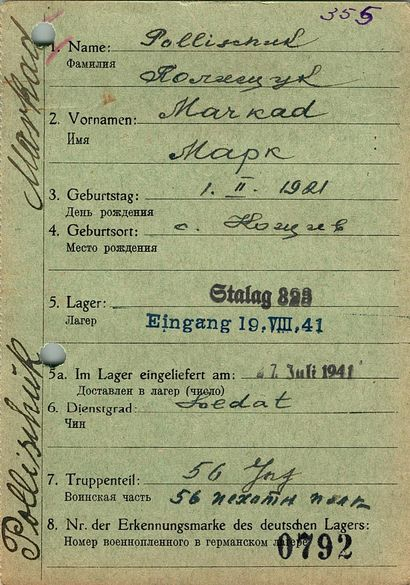 355
1. Name: Pollischuk
Фамилия
Полищук
2. Vornamen: Markad
Имя
Марк
3. Geburtstag: 1. II. 1921
День рождения
4. Geburtsort: с.
Место рождения
5. Lager: Stalag
Лагер
Eingang 19.VIII.41
5a. Im Lager eingeliefert am: Juli 1941
Доставлен в лагер (число)
6. Dienstgrad: Soldat
Чин
7. Truppenteil: 56
Воинская часть 56 пехотн полк
8. Nr. der Erkennungsmarke des deutschen Lagers:
Номер военнопленного в германском лагере:
0792
Pollischuk Markad